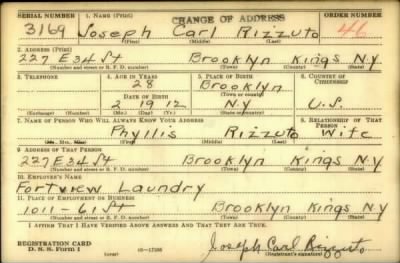 SERIAL NUMBER 1. NAME (Print) CHANGE OF ADDRESS ORDER NUMBER
3169 Joseph Carl Rizzuto 46
(First) (Middle) (Last)
2. ADDRESS (Print)
227 E 34 St Brooklyn Kings N.Y
(Number and street or R. F. D. number) (Town) (County) (State)
3. TELEPHONE 4. AGE IN YEARS 5. PLACE OF BIRTH 6. COUNTRY OF CITIZENSHIP
28 Brooklyn
DATE OF BIRTH (Town or county)
2 19 12 N.Y U.S.
(Exchange) (Number) (Mo.) (Day) (Yr.) (State or country)
7. NAME OF PERSON WHO WILL ALWAYS KNOW YOUR ADDRESS 8. RELATIONSHIP OF THAT PERSON
Phyllis Rizzuto Wife
(Mr., Mrs., Miss) (First) (Middle) (Last)
9. ADDRESS OF THAT PERSON
227 E 34 St Brooklyn Kings N.Y
(Number and street or R. F. D. number) (Town) (County) (State)
10. EMPLOYER'S NAME
Fortview Laundry
11. PLACE OF EMPLOYMENT OR BUSINESS
1011 - 61 St Brooklyn Kings N.Y
(Number and street or R. F. D. number) (Town) (County) (State)
I AFFIRM THAT I HAVE VERIFIED ABOVE ANSWERS AND THAT THEY ARE TRUE.
REGISTRATION CARD
D. S. S. Form 1 (over) Joseph Carl Rizzuto
(Registrant's signature)